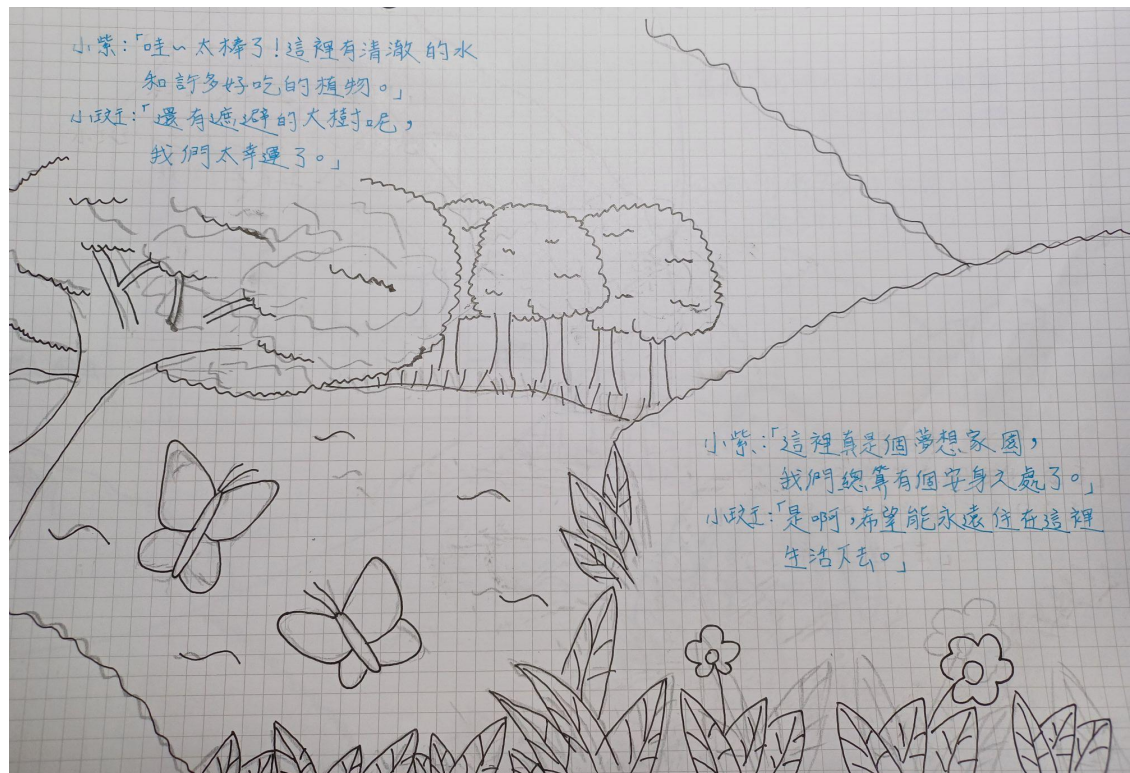 小紫:「哇~太棒了!這裡有清澈的水
和許多好吃的植物。」
小斑:「還有遮避的大樹呢,
我們太幸運了。」
小紫:「這裡真是個夢想家園,
我們總算有個安身之處了。」
小斑:「是啊,希望能永遠住在這裡
生活下去。」